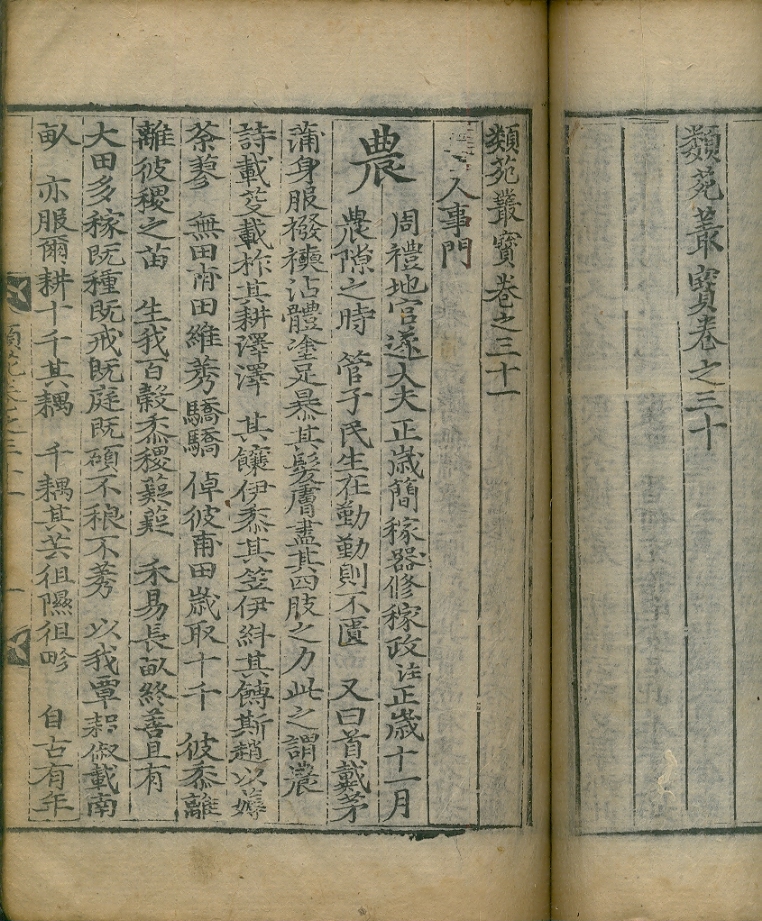 類苑叢寶卷之三十
類苑叢寶卷之三十一
人事門
農 周禮地官遂人夫正歲簡稼器修稼政注正歲十一月
農隙之時 管子民生在勤勤則不匱 又曰首戴茅
蒲身服襏襫沾體塗足暴其髮膚盡其四肢之力此之謂農
詩載芟載柞其耕澤澤 其饟伊黍其笠伊糾其鎛斯趙以薅
荼蓼 無田甫田維莠驕驕 倬彼甫田歲取十千 彼黍離
離彼稷之苗 生我百穀黍稷薿薿 禾易長畝終善且有
大田多稼既種既戒既庭既碩不稂不莠 以我覃耜俶載南
畝 亦服爾耕十千其耦 千耦其芸徂隰徂畛 自古有年
類苑卷之三十一 一